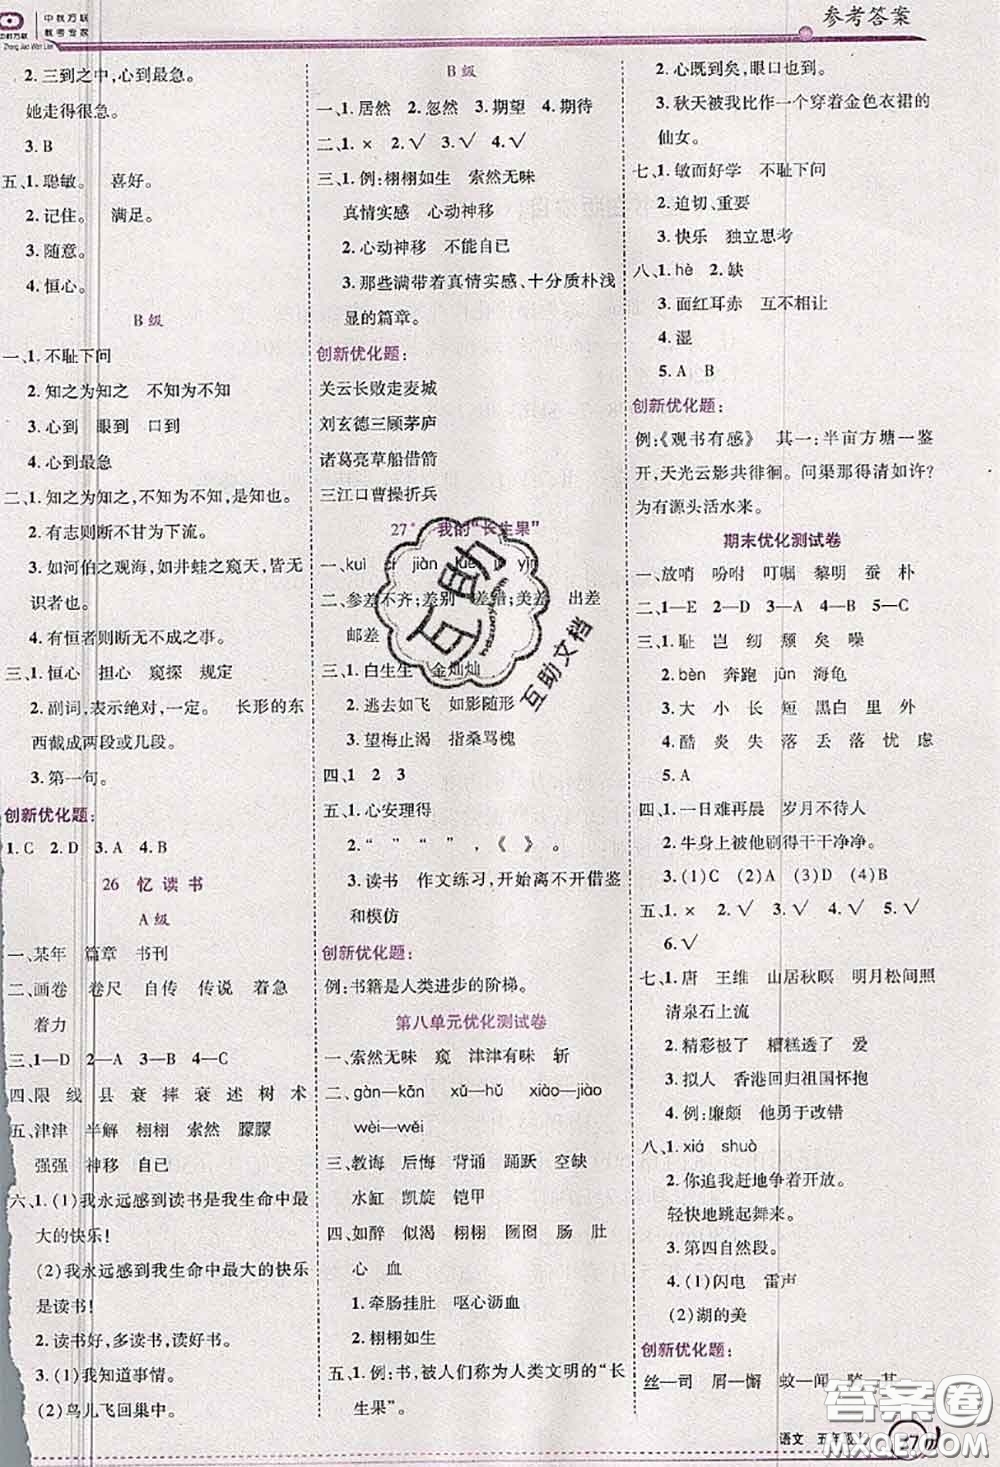 中教万联
教考专家
中教万联
Zhong Jiao Wan Lian
参考答案
2.三到之中,心到最急。
她走得很急。
3.B
五、1.聪敏。 喜好。
2.记住。 满足。
3.随意。
4.恒心。
B级
一、1.不耻下问
2.知之为知之 不知为不知
3.心到 眼到 口到
4.心到最急
二、1.知之为知之,不知为不知,是知也。
2.有志则断不甘为下流。
3.如河伯之观海,如井蛙之窥天,皆无
识者也。
4.有恒者则断无不成之事。
三、1.恒心 担心 窥探 规定
2.副词,表示绝对,一定。 长形的东
西截成两段或几段。
3.第一句。
创新优化题:
1.C 2.D 3.A 4.B
26 忆读书
A级
一、某年 篇章 书刊
二、画卷 卷尺 自传 传说 着急
着力
三、1—D 2—A 3—B 4—C
四、限 线 县 衰 摔 衰 述 树 术
五、津津 半解 栩栩 索然 朦朦
强强 神移 自已
六、1.(1)我永远感到读书是我生命中最
大的快乐!
(2)我永远感到我生命中最大的快乐
是读书!
2.读书好,多读书,读好书。
3.(1)我知道事情。
(2)鸟儿飞回巢中。
B级
一、1.居然 2.忽然 3.期望 4.期待
二、1.× 2.√ 3.√ 4.√
三、1.例:栩栩如生 索然无味
真情实感 心动神移
2.心动神移 不能自已
3.那些满带着真情实感、十分质朴浅
显的篇章。
创新优化题:
关云长败走麦城
刘玄德三顾茅庐
诸葛亮草船借箭
三江口曹操折兵
27* 我的“长生果”
一、kuì jiàn yìn
二、参差不齐;差别 差错;美差 出差
邮差
三、1.白生生 金灿灿
2.逃去如飞 如影随形
3.望梅止渴 指桑骂槐
四、1 2 3
五、1.心安理得
2.“ ” “ ”,《 》。
3.读书 作文练习,开始离不开借鉴
和模仿
创新优化题:
例:书籍是人类进步的阶梯。
第八单元优化测试卷
一、索然无味 窥 津津有味 斩
二、gàn—kān xǔ—hǔ xiào—jiào
wèi—wěi
三、教诲 后悔 背诵 踊跃 空缺
水缸 凯旋 铠甲
四、如醉 似渴 栩栩 囫囵 肠 肚
心 血
1.牵肠挂肚 呕心沥血
2.栩栩如生
五、1.例:书,被人们称为人类文明的“长
生果”。
2.心既到矣,眼口也到。
3.秋天被我比作一个穿着金色衣裙的
仙女。
七、1.敏而好学 不耻下问
2.迫切、重要
3.快乐 独立思考
八、1.hè 2.缺
3.面红耳赤 互不相让
4.湿
5.A B
创新优化题:
例:《观书有感》 其一:半亩方塘一鉴
开,天光云影共徘徊。问渠那得清如许?
为有源头活水来。
期末优化测试卷
一、放哨 吩咐 叮嘱 黎明 蚕 朴
二、1—E 2—D 3—A 4—B 5—C
三、1.耻 岂 纫 颓 矣 噪
2.bèn 奔跑 jūn 海龟
3.大 小 长 短 黑白 里 外
4.酷 炎 失 落 丢 落 忧 虑
5.A
四、1.一日难再晨 岁月不待人
2.牛身上被他刷得干干净净。
3.(1)C (2)B (3)A (4)D
五、1.× 2.√ 3.√ 4.√ 5.√
6.√
七、1.唐 王维 山居秋暝 明月松间照
清泉石上流
2.精彩极了 糟糕透了
3.拟人 香港回归祖国怀抱
4.例:廉颇 他勇于改错
八、1.xiá shuò
2.你追我赶地争着开放。
轻快地跳起舞来。
3.第四自然段。
4.(1)闪电 雷声
(2)湖的美
创新优化题:
丝—司 屑—懈 蚊—闻
语文 五年级
互助
互助文档
答案圈
MXQE.COM